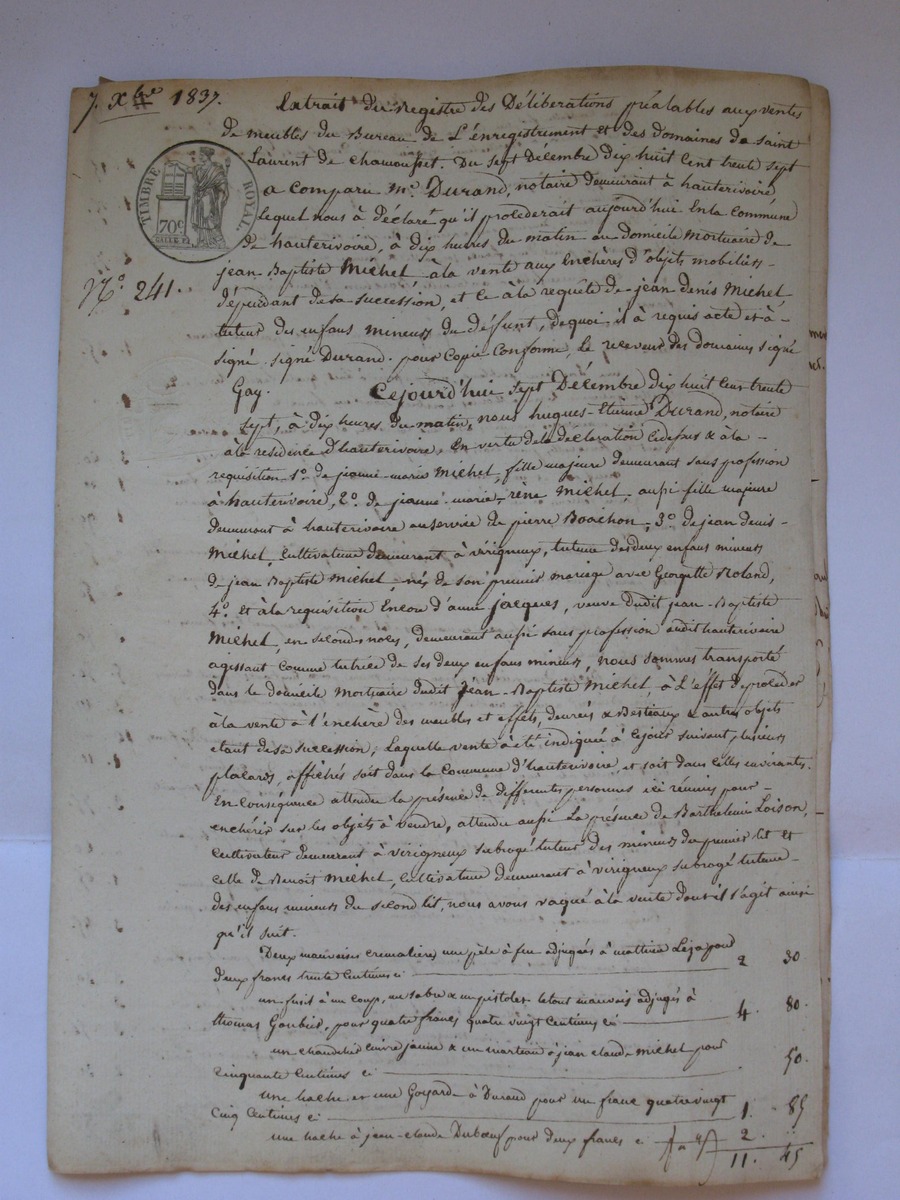 7. Xbre 1837.
Extrait du registre des Déliberations préalables aux ventes
de meubles du Bureau de L'énregistrement et des domaines de saint
Laurent de chamousset. Du sept décembre dix huit cent trente sept
a comparu Me. Durand, notaire demeurant à hauterivoire
lequel nous à déclaré qu'il procéderait aujourd'hui En la commune
de hauterivoire, à dix heures du matin au domicile mortuaire de
jean-Baptiste Michel à la vente aux Enchères d'objets mobiliers
dépendant de sa succession, et ce à la requête de jean denis Michel,
tuteur des enfans mineurs du défunt, de quoi il à requis acte et à
signé. signé Durand. pour Copie Conforme, le receveur des domaines signé
Gay. Cejourd'hui sept Décembre dix huit cent trente
sept, à dix heures du matin, nous hugues-Etienne Durand, notaire
à la résidence d'hauterivoire, En vertu de la déclaration cidessus & à la
requisition 1o. de jeanne-marie Michel, fille majeure demeurant sans profession
à hauterivoire, 2o. de jeanne-marie-rène Michel, aussi fille majeure
demeurant à hauterivoire au service de pierre Boachon, 3o. de jean denis
Michel, Cultivateur demeurant à virigneux, tuteur des deux enfans mineurs
de jean Baptiste Michel, nés de son premier mariage avec Georgette Roland,
4o. et à la requisition Encore d'anne jacques, veuve dudit jean-Baptiste
Michel, en secondes noces, demeurant aussi sans profession audit hauterivoire
agissant comme tutrice de ses deux enfans mineurs, nous sommes transporté
dans le domicile mortuaire dudit Jean-Baptiste Michel, à L'effet de procéder
à la vente à l'enchère des meubles et effets, denrées & Bestiaux & autres objets
étant de sa succession, Laquelle vente à été indiquée à cejour suivant plusieurs
placards, affichés soit dans la Commune d'hauterivoire, et soit dans celles environantes.
En conséquence attendu la présence de différentes personnes ici réunies pour
enchérir sur les objets à vendre, attendu aussi La présence de Barthelemi Loison,
Cultivateur demeurant à virigneux subrogé tuteur des mineurs du premier lit et
celle de Benoit Michel, Cultivateur demeurant à virigneux subrogé tuteur
des enfans mineurs du second lit, nous avons vaqué à la vente dont il s'agit ainsi
qu'il suit.
Deux mauvaises cremalières une pèle à feu adjugées à mathieu pour
deux francs trente Centimes ci 2 30
un fusil à un coup, un sabre & un pistolet le tout mauvais adjugés à
thomas pour quatre francs quatre vingt Centimes ci 4. 80.
un chandelier cuivre jaune & un marteau à jean claude Michel pour
cinquante Centimes ci 50.
une hache et une Goyarde à Durand pour un franc quatre vingt
cinq Centimes ci 1. 85
une hache à jean-claude Duboeuf pour deux francs ci 2. "
11. 45
TIMBRE ROYAL.
70c
No. 241.